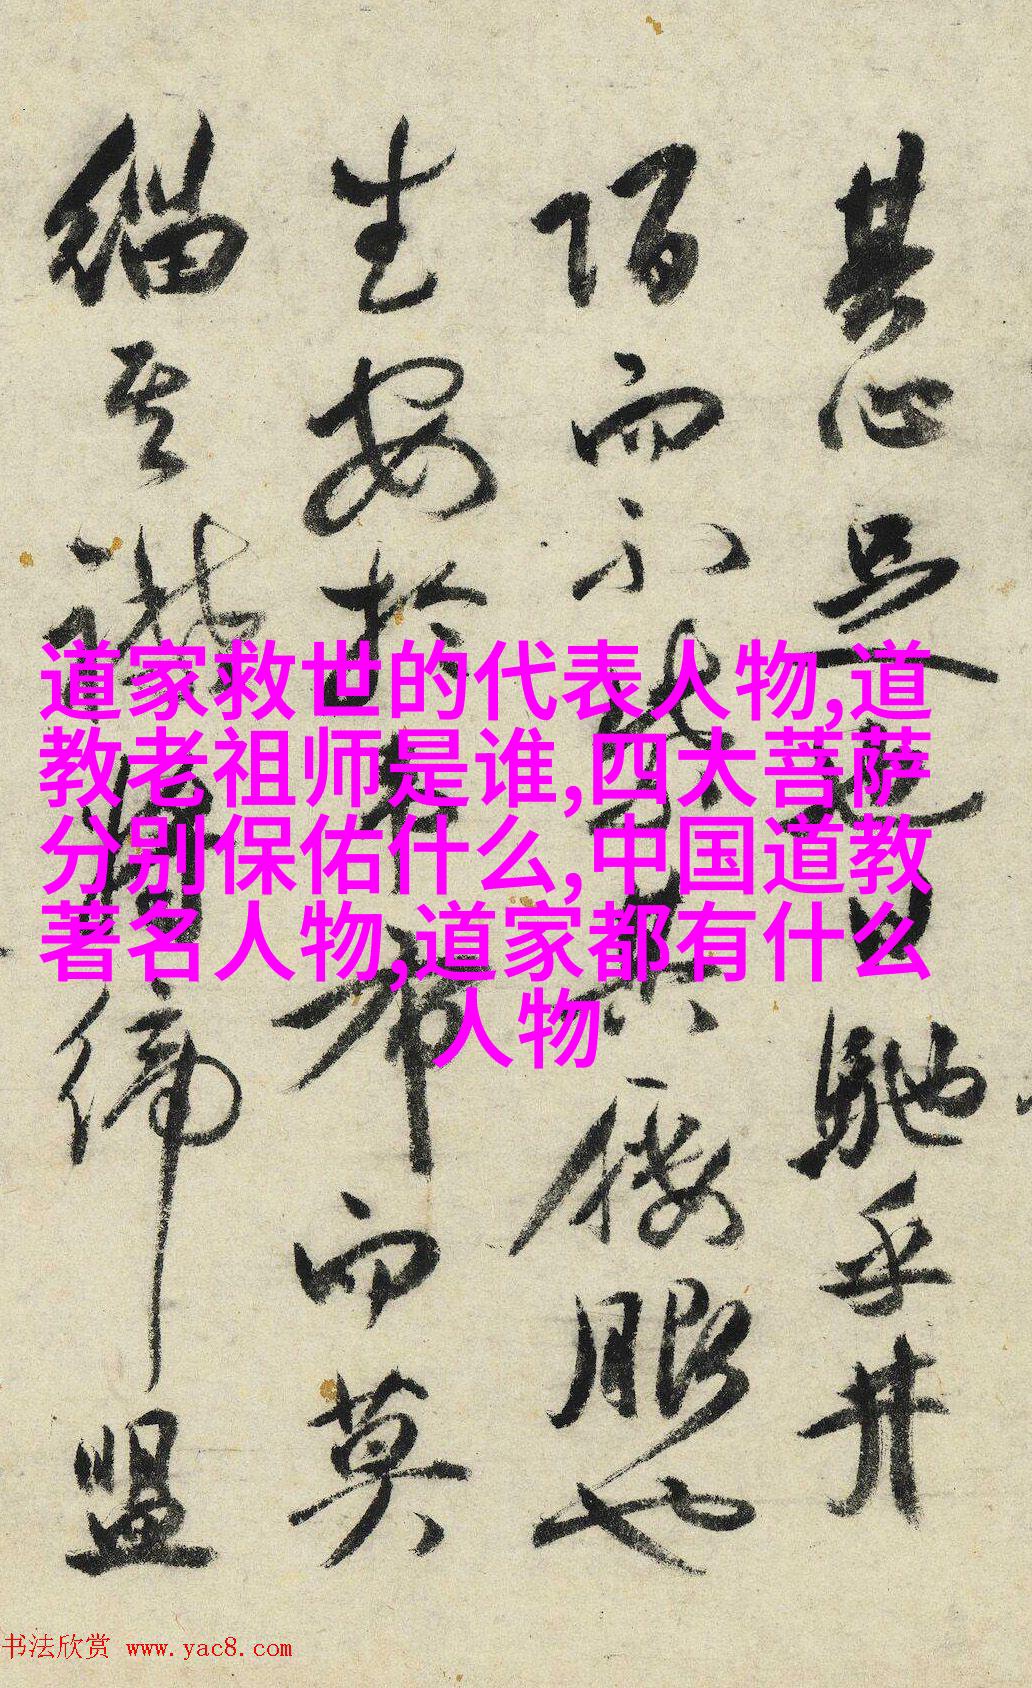 其心足跡日馳乎井
陌而不其優暇也
生安於布而莫
緇其締盟
道家救世的代表人物,道
教老祖师是谁,四大菩萨
分别保佑什么,中国道教
著名人物,道家都有什么
人物
书法欣赏 www.yac8.com